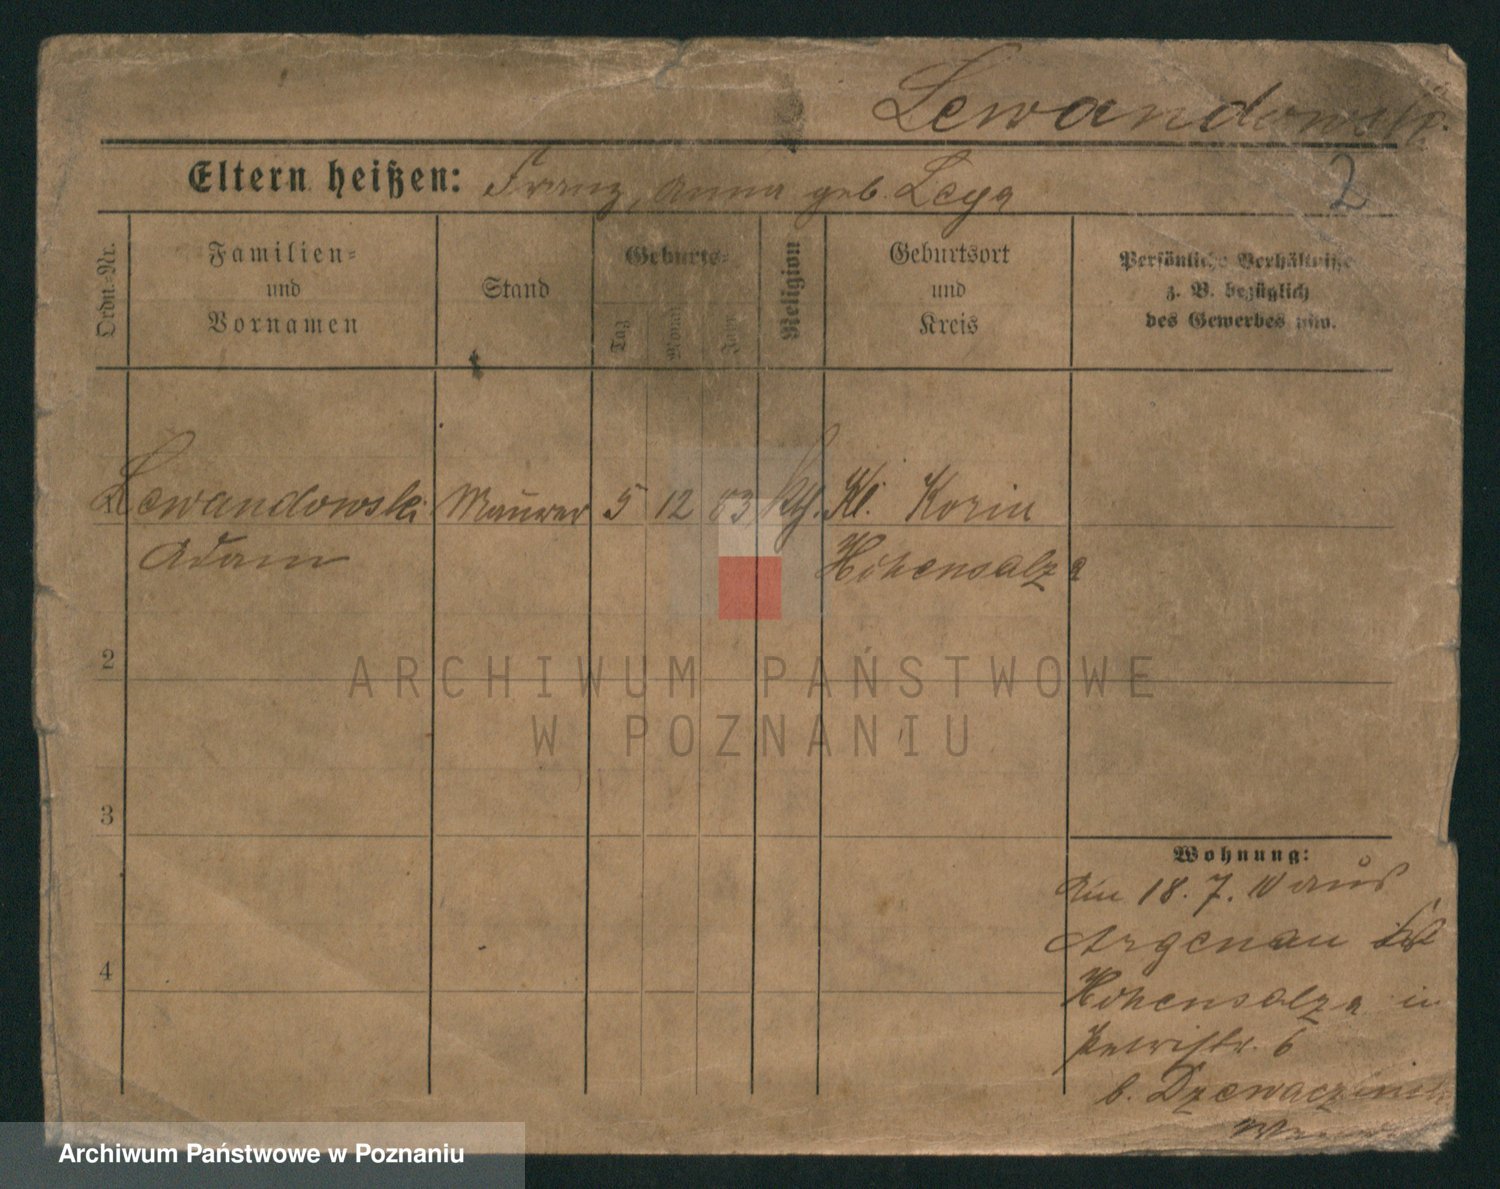 Lewandowski.
2
Eltern heißen: Franz, Anna geb. Leya
Ordn.-Nr.
Familien-
und
Vornamen
Stand
Geburts-
Tag
Monat
Jahr
Religion
Geburtsort
und
Kreis
Persönliche Verhältnisse
z. B. bezüglich
des Gewerbes usw.
Lewandowski Maurer 5 12 83 kth. Kl. Korin
Adam Hohensalza
2
3
4
Wohnung:
Am 18. 7. 10 aus
Argenau
Hohensalza in
6
b.
ARCHIWUM PAŃSTWOWE
W POZNANIU
Archiwum Państwowe w Poznaniu